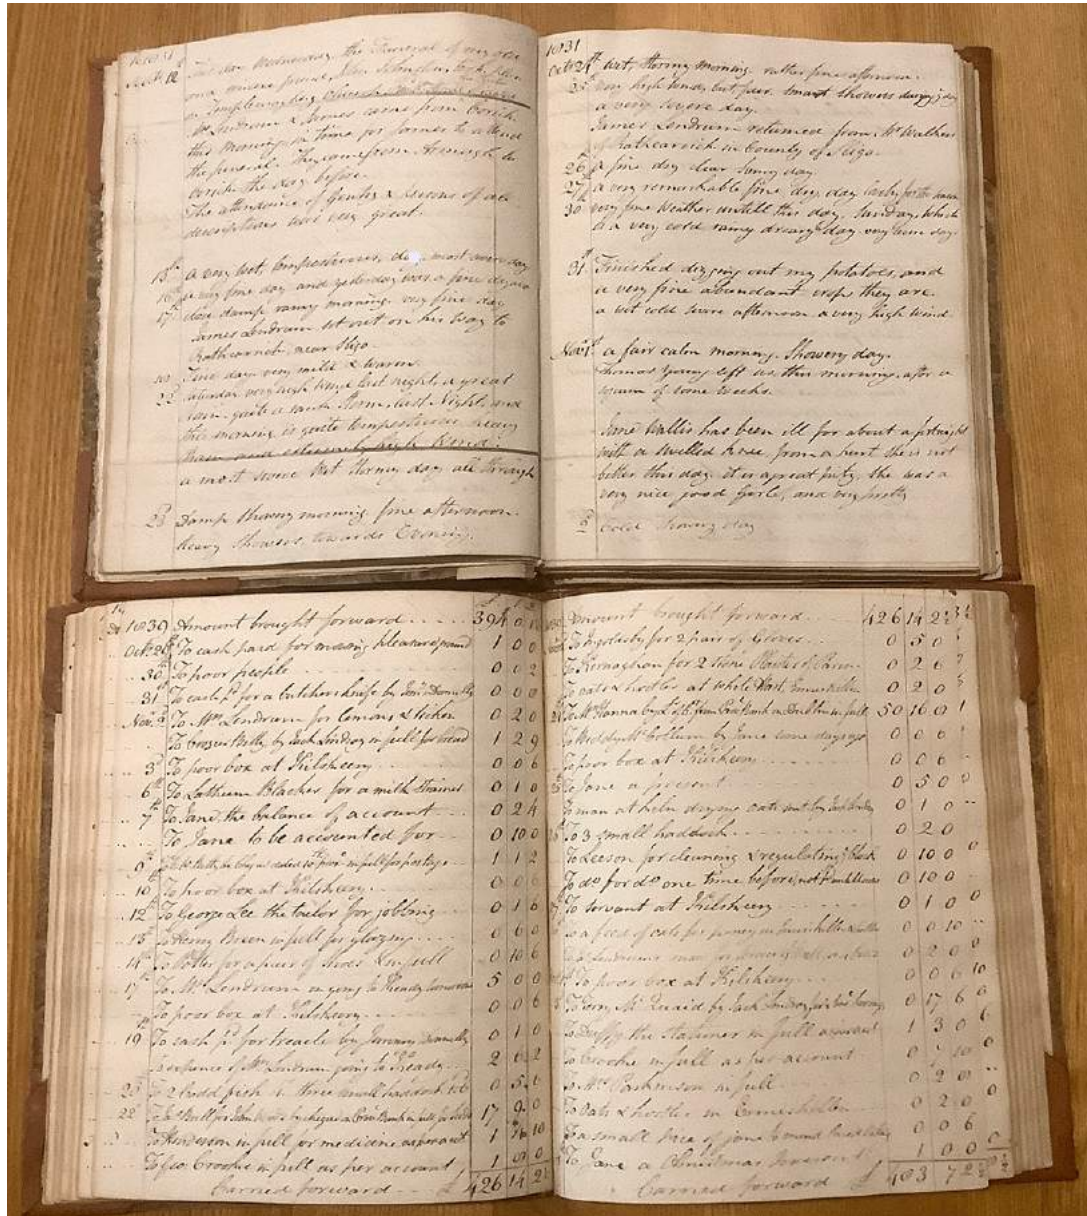 This day Wednesday, the Funeral of my old
and sincere friend, John Johnston, took place
in Templecarn Church
Mrs Lendrum & James came from Corick
this morning in time for former to attend
the funeral. They came from Armagh to
Corick the day before.
The attendance of Gentry & persons of all
descriptions was very great.
15th a very wet, tempestuous, most severe day
16th a very fine day and yesterday was a fine dry
17th close damp rainy morning. very fine day
James Lendrum set out on his way to
near Sligo.
Fine day very mild & warm.
22d Saturday very high wind last night, a great
rain, quite a storm, last Night, and
this morning is quite tempestuous heavy
rain and extremely high Wind.
a most severe wet stormy day all through
23d Damp Showery morning. fine afternoon.
heavy Showers, towards Evening.
1831
Octr 24th Wet, Stormy morning. rather fine afternoon.
25th Very high Wind, but fair. smart showers during day
a very severe day.
James Lendrum returned from Mr Walkers
of in County of Sligo.
26th a fine dry clear sunny day
27th a very remarkable fine dry day
30th very fine Weather untill this day, Sunday, which
is a very cold rainy dreary day very
31st Finished digging out my potatoes, and
a very fine abundant crop they are.
a wet cold severe afternoon a very high Wind.
Novr 1st a fair calm morning. Showery day.
Thomas Young left us this morning, after a
sojourn of some Weeks.
Jane Wallis has been ill for about a fortnight
with a swelled knee, from a hurt she is not
better this day. it is a great pity, she was a
very nice good Girle, and very pretty
2d Cold Showery day
1839 Amount brought forward 394 0
Octr 26th To cash paid for mowing pleasure ground 1 0 0
30th To poor people 0 0 2
31st To cash pd for a butchers knife by Donnelly 0 0
Novr 2d To Mrs Lendrum for lemons & ticken 0 2 0
To Crozier Betty, by Jack Lindsay in full for bread 1 2 9
3d To poor box at Kilskeery 0 0 6
6th To Latham Blacker for a milk Strainer 0 1 0
7th To Jane, the balance of account 0 2 4
To Jane to be accounted for 0 10 0
9th in full for postage 1 1 2
10 To poor box at Kilskeery 0 0 6
12th To George Lee the tailor for jobbing 0 1 6
13th To Henry Breen in full for glazing 0 6 0
14th To Potter for a pair of shoes in full 0 10 6
17th To Mrs Lendrum on going to Keady tomorrow 5 0 0
To poor box at Kilskeery 0 0 6
19th To cash pd for treacle by Donnelly 0 1 0
To expence of Mrs Lendrum going to Keady 2 6 2
20th To 2 codd fish & three small haddock 0 5 6
22d 17 9 0
To Henderson in full for medicine as per acct 1 10
To Geo: Crookie in full as per account 1
Carried forward £ 426 14 2½
Amount brought forward 426 14 2½
To Ingoldsby for 2 pair of Gloves 0 5 0
To Kernaghan for 2 0 2 6
To oats & hostler at White Hart, Enniskillen 0 2 0
To Mr Hanna by from Bank in Dublin in full 50 16 9
To Biddy McCollum by Jane some days ago 0 0 6
To poor box at Kilskeery 0 0 6
To Jane a present 0 5 0
To man at kiln drying oats sent by Jack Lindsay 0 1 0
To 3 small haddock 0 2 0
To Leeson for cleaning & regulating Clock 0 10 0
To do for do one time before, not 0 10 0
To servant at Kilskeery 0 1 0
To a feed of oats for poney in Enniskillen 0 0 10
0 2 0
To poor box at Kilskeery 0 0 6
To Terry McQuaid by Jack Lindsay 0 17 6
To Duffy the Stationer in full as per acct 1 3 0
To Crookie in full as per account 0 10
To Mrs Parkinson in full 0 2 0
To Oats & hostler in Enniskillen 0 2 0
To a small piece of 0 0 6
To Jane a Christmas present 1 0 0
Carried forward £ 483 7 2½